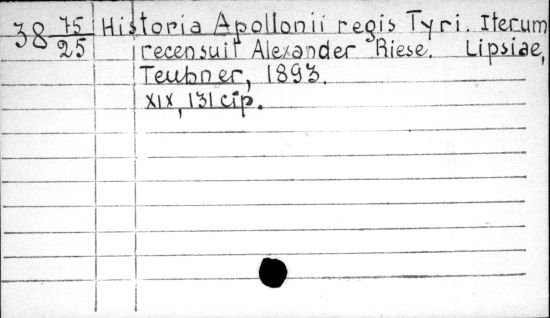 38 75/25 Historia Apollonii regis Tyri. Iterum
recensuit Alexander Riese. Lipsiae,
Teubner, 1893.
XIX, 131 cip.